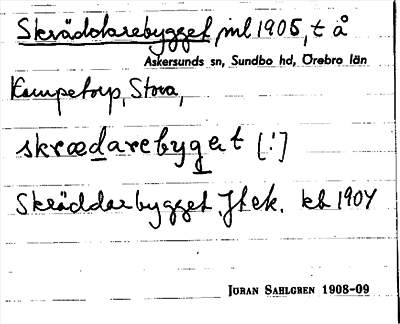 Skräddarebygget, ml 1905, t å
Askersunds sn, Sundbo hd, Örebro län
Kämpetorp, Stora,
skrædarebyget [!]
Skräddarbygget. Jfr ek. kb 1904
JÖRAN SAHLGREN 1908-09